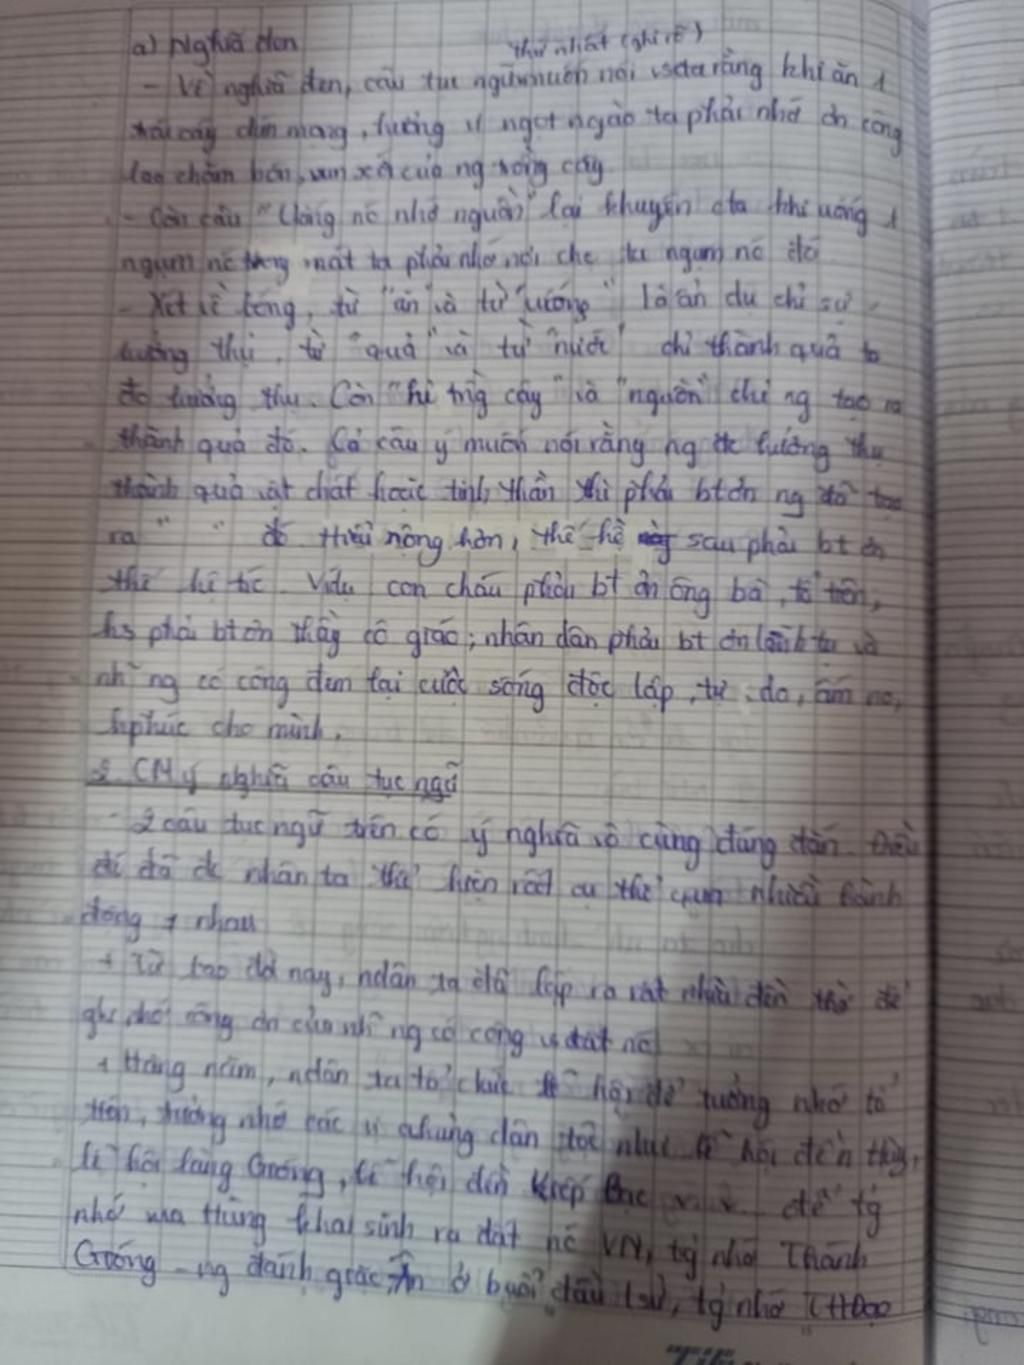 a) Nghĩa đen
thứ nhất (ghi rõ)
- Về nghĩa đen, câu tục ngữ muốn nói rằng khi ăn 1
trái cây chín mọng, hương vị ngọt ngào ta phải nhớ ơn công
lao chăm bón, vun xới của ng trồng cây
- Còn câu "Uống nc nhớ nguồn" lại khuyên cta khi uống 1
ngụm nc trong mát ta phải nhớ nơi cho ta ngụm nc đó
- Xét về bóng, từ "ăn" và từ "uống" là ẩn dụ chỉ sự
hưởng thụ, từ "quả" và từ "nước" chỉ thành quả ta
đc hưởng thụ. Còn "trồng cây" và "nguồn" chỉ ng tạo ra
thành quả đó. Cả câu ý muốn nói rằng ng đc hưởng thụ
thành quả vật chất hoặc tinh thần thì phải bt ơn ng đã tạo
ra " " đó. Hiểu nông hơn, thế hệ sau phải bt ơn
thế hệ trc. Ví dụ con cháu phải bt ơn ông bà, tổ tiên,
hs phải bt ơn thầy cô giáo; nhân dân phải bt ơn lãnh tụ và
những ng có công đem lại cuộc sống độc lập, tự do, ấm no,
h phúc cho mình.
2. CM ý nghĩa câu tục ngữ
- 2 câu tục ngữ trên có ý nghĩa vô cùng đúng đắn. Điều
đó đã đc nhân ta thể hiện rất cụ thể qua nhiều hành
động ≠ nhau
+ Từ bao đời nay, ndân ta đã lập ra rất nhiều đền thờ để
ghi nhớ công ơn của những ng có công vs đất nc
+ Hàng năm, ndân ta tổ chức lễ hội để tưởng nhớ tổ
tiên, tưởng nhớ các vị dân tộc như lễ hội đền Hùng,
lễ hội làng Gióng, lễ hội đền Kiếp Bạc v.v.. để tg
nhớ vua Hùng khai sinh ra đất nc VN, tg nhớ Thánh
Gióng - ng đánh giặc Ân ở buổi đầu lsử, tg nhớ THĐạo